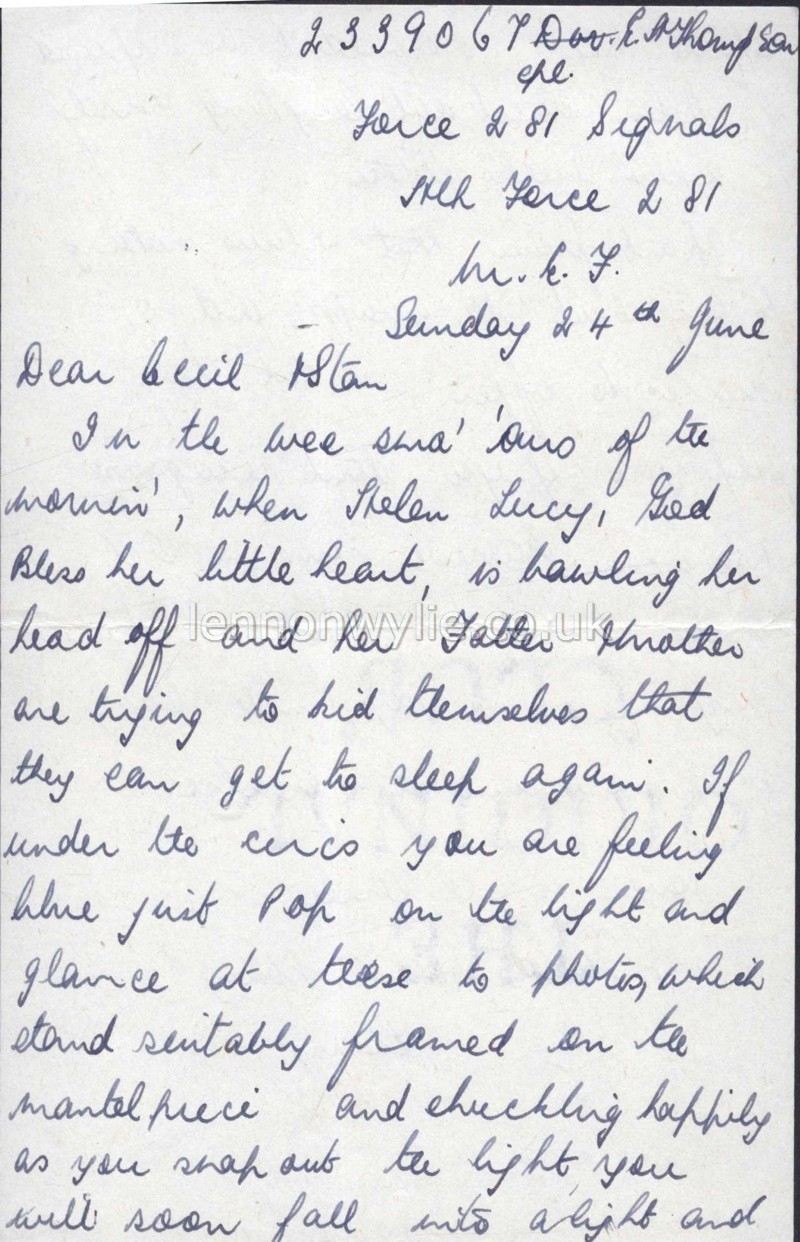 2339067 Dvr. E. A Thompson
cpl.
Force 281 Signals
Hth Force 281
M. E. F.
Sunday 24th June
Dear Cecil & Stan
In the wee sma' 'ours of the
mornin', when Helen Lucy, God
Bless her little heart, is bawling her
head off and her Father & mother
lennonwylie.co.uk
are trying to kid themselves that
they can get to sleep again. If
under the circs you are feeling
blue just Pop on the light and
glance at these to photos, which
stand suitably framed on the
mantelpiece and chuckling happily
as you snap out the light, you
will soon fall into a light and